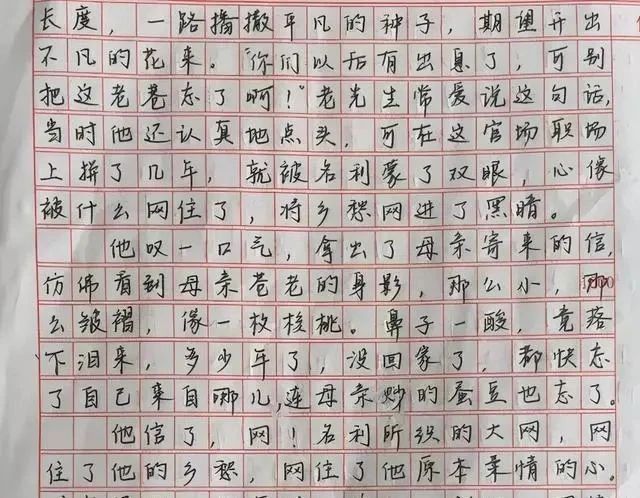 长度，一路播撒平凡的种子，期望开出
不凡的花来。“你们以后有出息了，可别
把这老巷忘了啊！”老先生常爱说这句话，
当时他还认真地点头，可在这官场职场
上拼了几年，就被名利蒙了双眼，心像
被什么网住了，将乡愁网进了黑暗。
他叹一口气，拿出了母亲寄来的信，
仿佛看到母亲苍老的身影，那么小，那
么皱褶，像一枚核桃。鼻子一酸，竟落
下泪来，多少年了，没回家了，都快忘
了自己来自哪儿，连母亲炒的蚕豆也忘了。
他信了，网！名利所织的大网，网
住了他的乡愁，网住了他原本柔情的心。